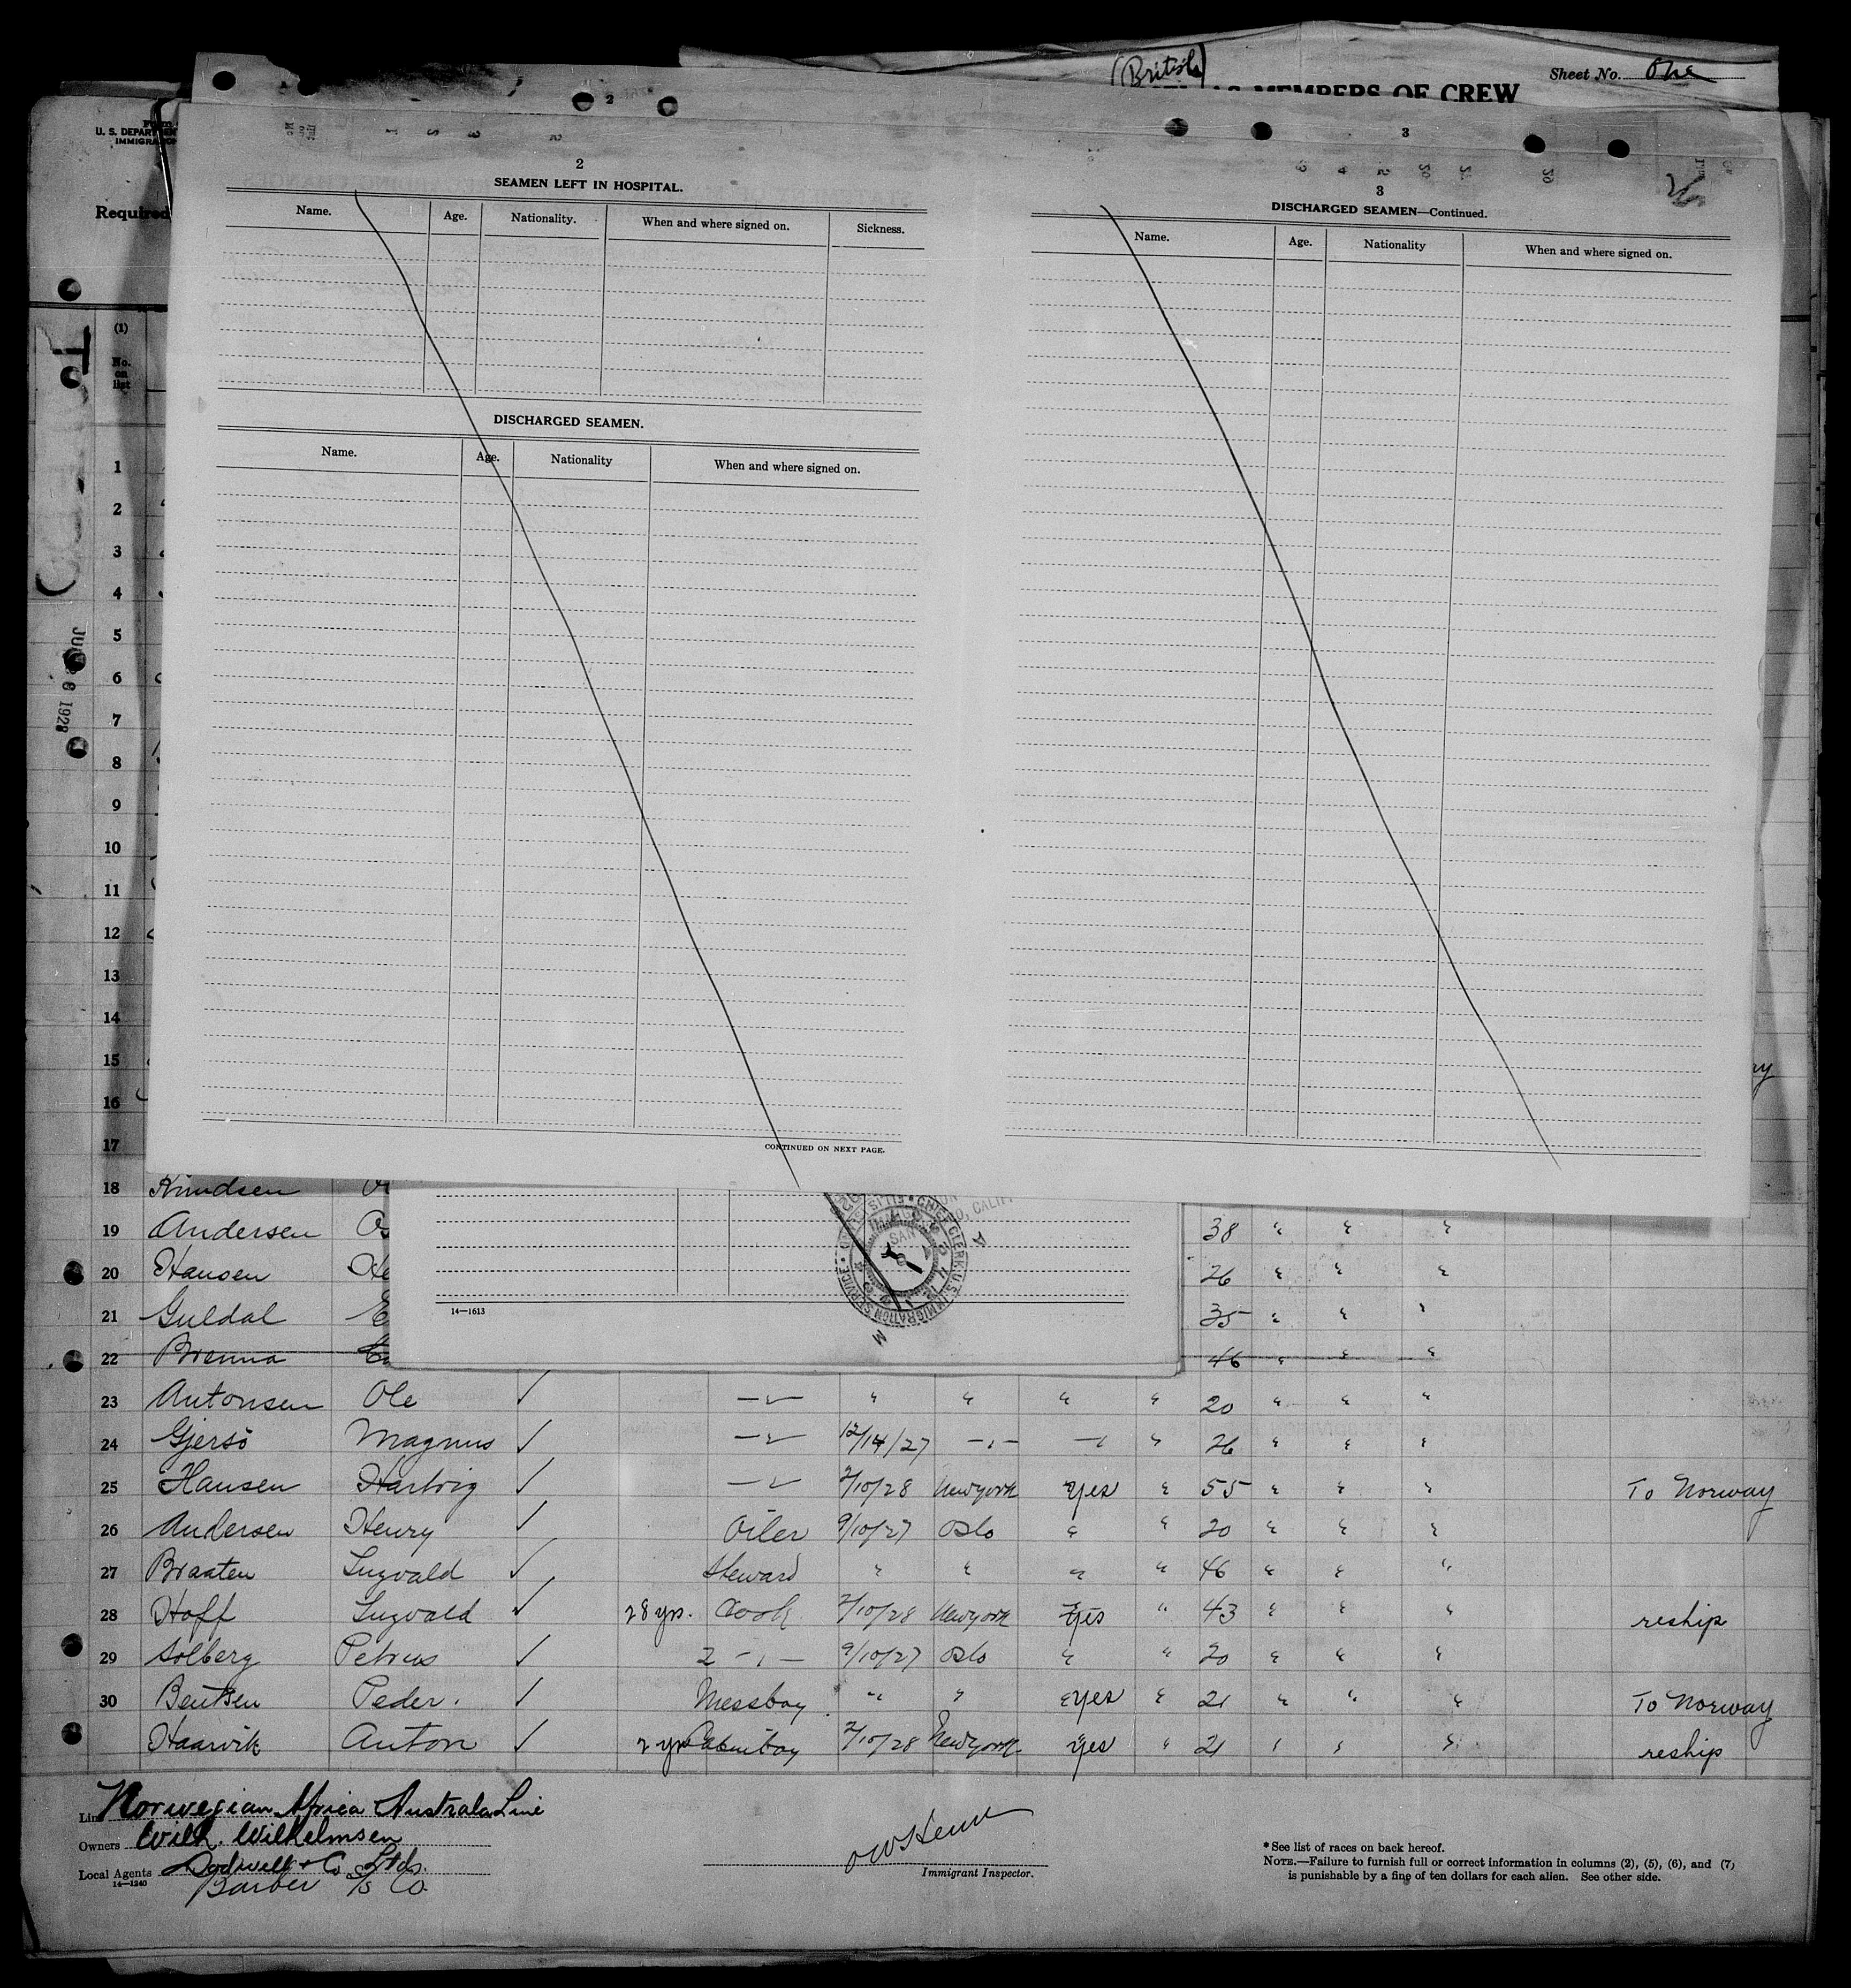 (British)
MEMBERS OF CREW
Sheet No. One
U. S. DEPARTMENT
IMMIGRATION
Required
2
3
2
SEAMEN LEFT IN HOSPITAL.
Name. Age. Nationality. When and where signed on. Sickness.
DISCHARGED SEAMEN.
Name. Age. Nationality When and where signed on.
CONTINUED ON NEXT PAGE.
3
DISCHARGED SEAMEN—Continued.
Name. Age. Nationality When and where signed on.
(1)
No. on list
1
2
3
4
5
6
7
8
9
10
11
12
13
14
15
16
17
18 Knudsen
19 Andersen 38 " " "
20 Hansen 26 " " "
21 Guldal 35 " " "
22 Brenna 46 " " "
14—1613
23 Antonsen Ole ✓ —"— " " " " 20 " " "
24 Gjersö Magnus ✓ —"— 12/14/27 —"— —" " 26 " " "
25 Hansen Hartvig ✓ —"— 2/10/28 Newyork Yes " 55 " " " To Norway
26 Andersen Henry ✓ Oiler 9/10/27 Oslo " " 20 " " "
27 Braaten Ingvald ✓ Steward " " " " 46 " " "
28 Hoff Ingvald ✓ 28 yrs. Cook 2/10/28 Newyork Yes " 43 " " " reship
29 Solberg Petrus ✓ 2 —"— 9/10/27 Oslo " " 20 " " "
30 Bentsen Peder. ✓ Messboy " " " Yes " 21 " " " To Norway
Haarvik Anton ✓ 2 yrs Cabinboy 2/10/28 Newyork Yes " 21 " " " reship
Line Norwegian Africa Australa Line
Owners Wilh. Wilhelmsen
Local Agents Dodwell & Co Ltd.
14—1240
Barber S/S Co.
Immigrant Inspector.
* See list of races on back hereof.
NOTE.—Failure to furnish full or correct information in columns (2), (5), (6), and (7) is punishable by a fine of ten dollars for each alien. See other side.